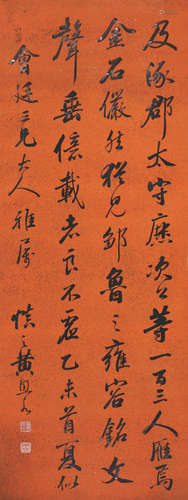 及涿郡太守廉次公等一百三人雕焉
金石儼然猶見鄒魯之雍容銘文
聲垂億載者良不虛乙未首夏似
會廷三兄大人雅屬
慎之黃自元